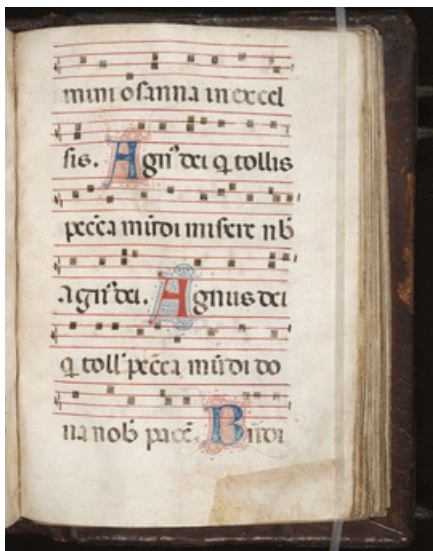 mini osanna in excel
sis. Agn⁹ dei q̇ tollis
pecc̄a mūdi misere nb̄
Agn⁹ dei. Agnus dei
q̇ toll' pecc̄a mūdi do
na nob̄ pacē. Būdi